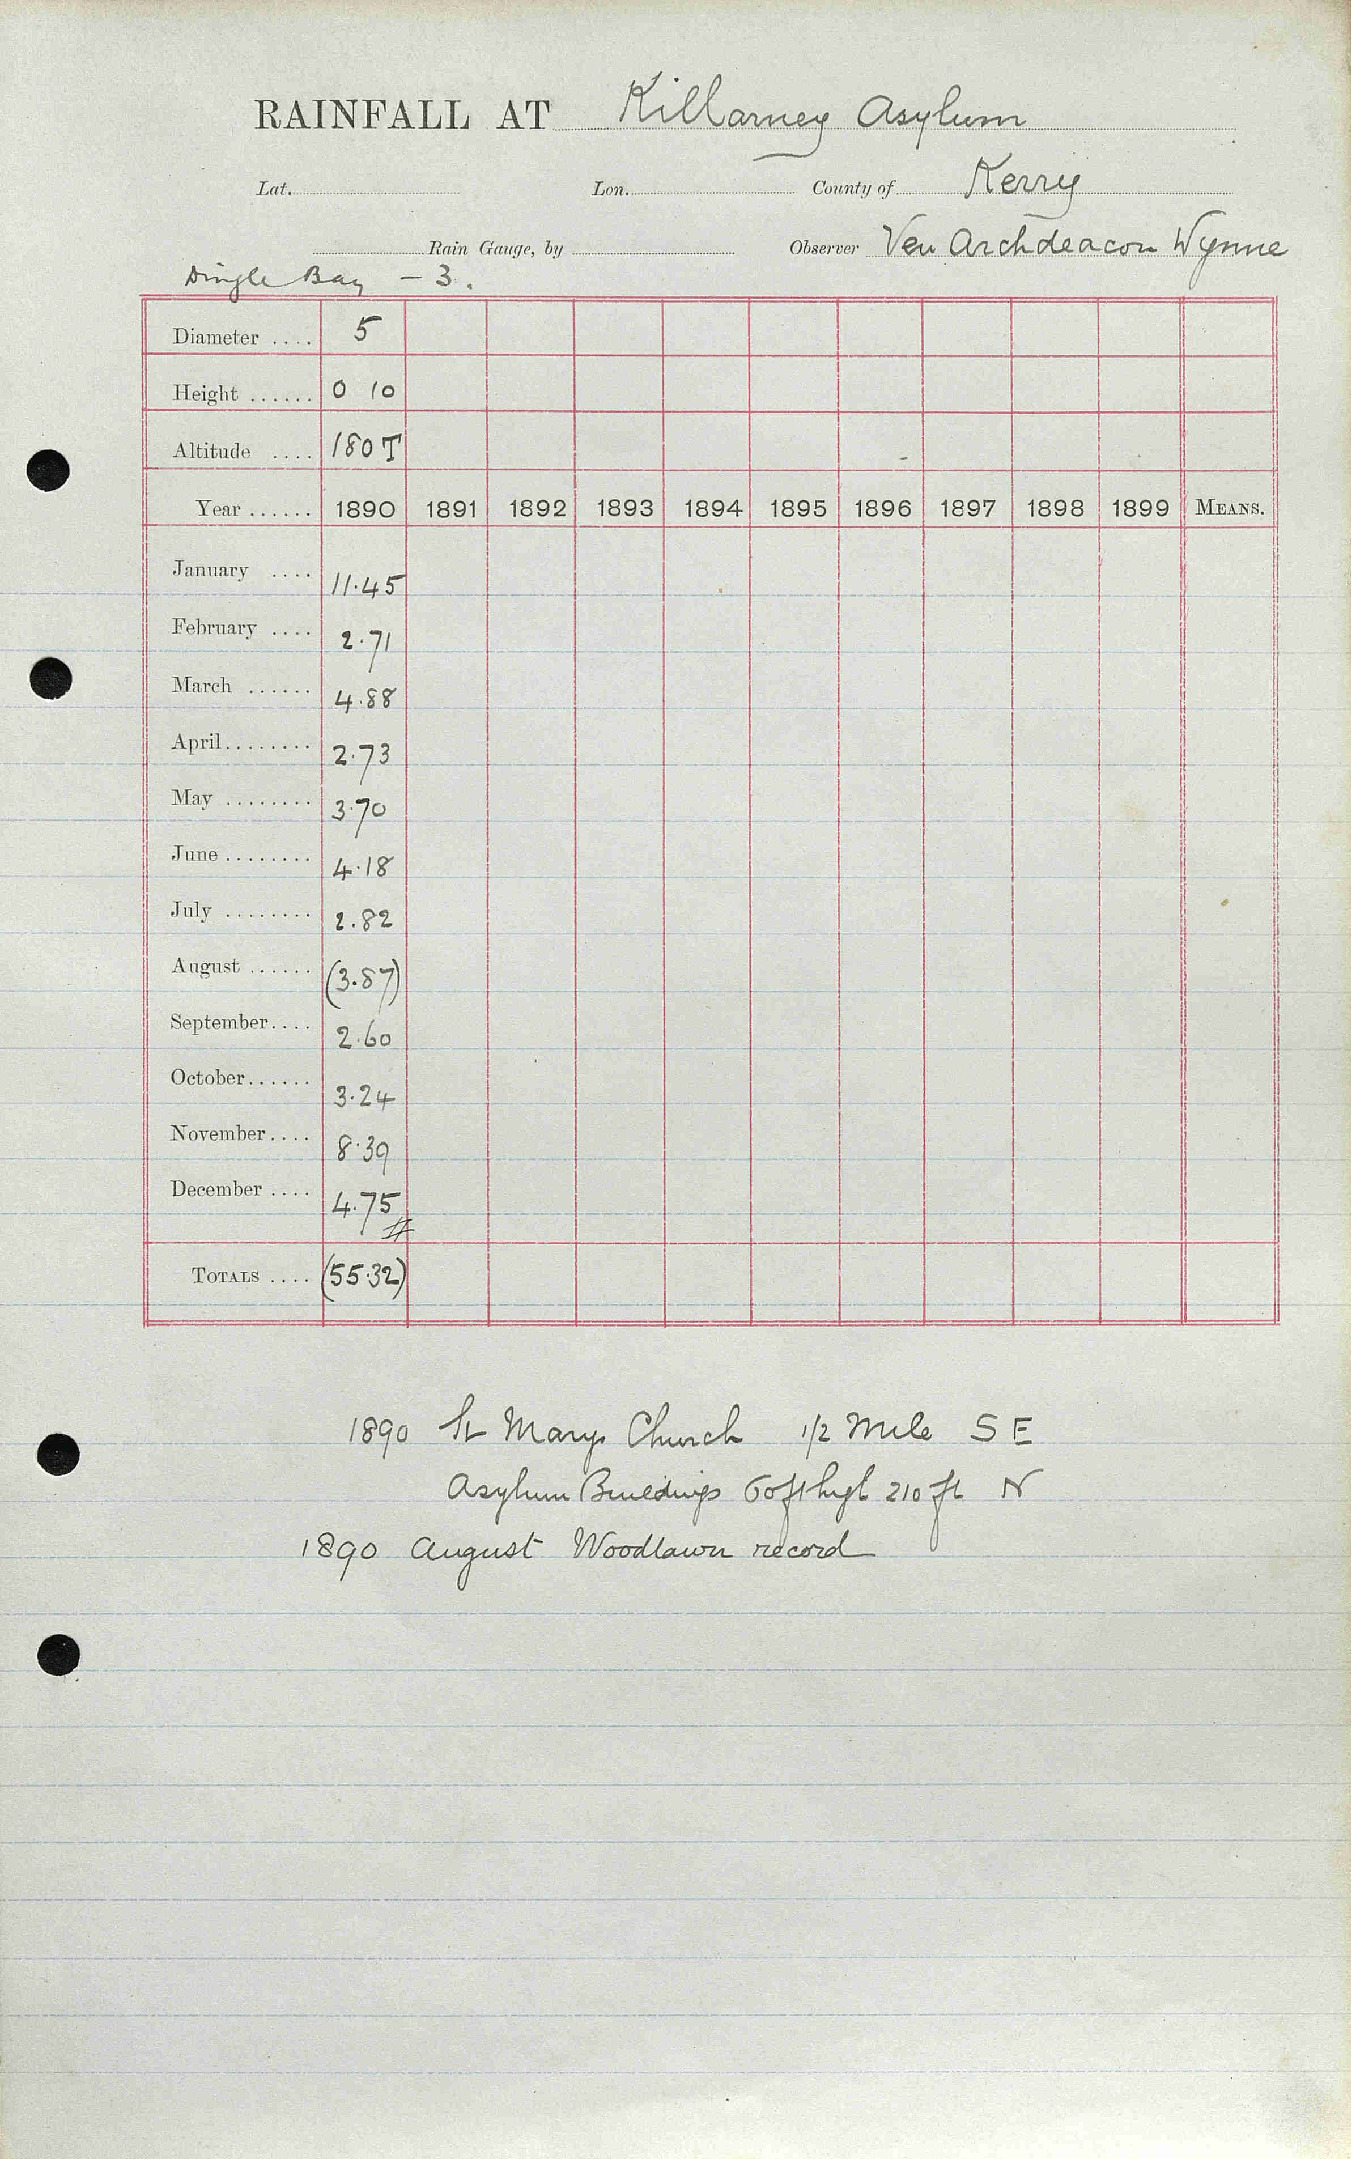 RAINFALL AT Killarney Asylum
Lat. Lon. County of Kerry
Rain Gauge, by Observer Ven Archdeacon Wynne
Dingle Bay – 3.
Diameter .... 5
Height ...... 0 10
Altitude .... 180 T
Year ...... 1890 1891 1892 1893 1894 1895 1896 1897 1898 1899 MEANS.
January .... 11.45
February .... 2.71
March ...... 4.88
April........ 2.73
May ........ 3.70
June ........ 4.18
July ........ 2.82
August ...... (3.87)
September.... 2.60
October...... 3.24
November.... 8.39
December .... 4.75
#
TOTALS .... (55.32)
1890 St Marys Church 1/2 Mile S E
Asylum Buildings 60 ft high 210 ft N
1890 August Woodlawn record